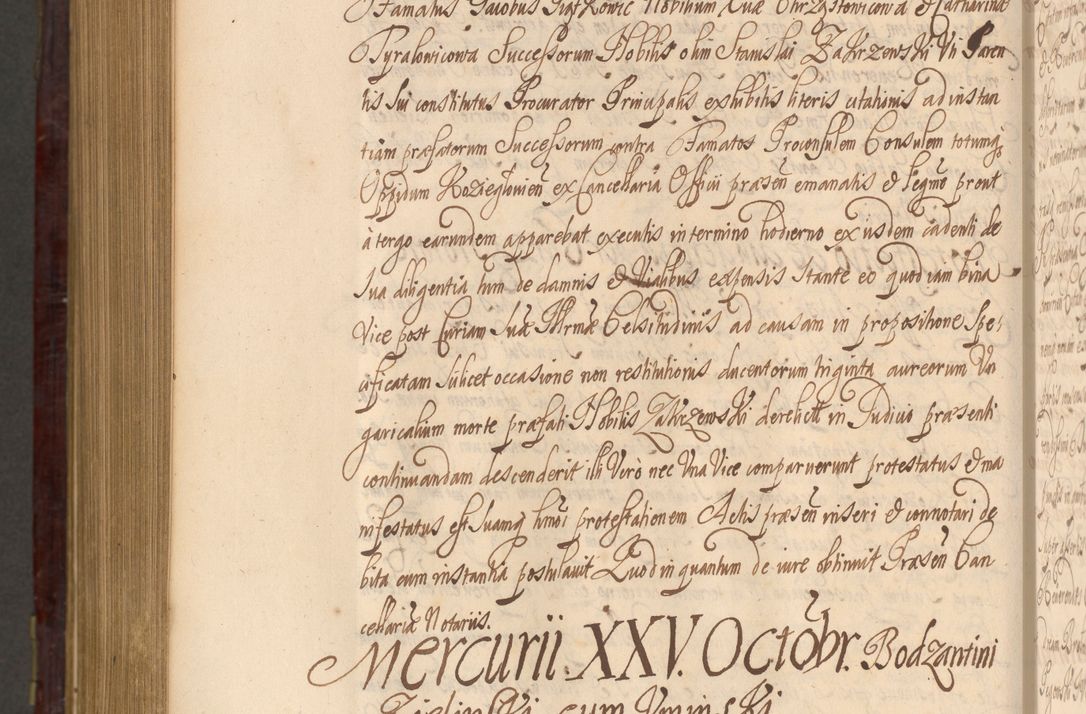 Famatus Jacobus Piątkowic Nobilium Evæ Chrząstowicowa et Catharina
Pyrałowicowa Successorum Nobilis olim Stanislai Zakrzewski Vti Paren
tis sui constitutus Procurator Principalis exhibitis literis citationis ad instan
tiam præfatorum Successorum contra Famatos Proconsulem Consulem totumq
Oppidum Kozieglovien̄ ex Cancellaria Officii præsen̄ emanatis et legme prout
à tergo earundem apparebat executis in termino hodierno ex iisdem cadenti de
sua diligentia tum de damnis et Vialibus expensis Stante eo quod iam bina
vice post Curiam Suæ Illrmæ Celsitudinis ad causam in propositione spe
cificatam scilicet occasione non restitutionis ducentorum triginta aureorum Vn
garicalium morte præfati Nobilis Zakrzewski derelict in Judicio præsenti
continuandam descenderit illi Verò nec Vna Vice comparuerunt protestatus et ma
nifestatus est suamq hmōi protestationem Actis præsen̄ inseri et connotari de
bita cum instantia postulavit Quod in quantum de iure obtinuit Præsen̄ Can
cellariæ Notarius.
Mercurii XXV. Octobr. Bodzantini